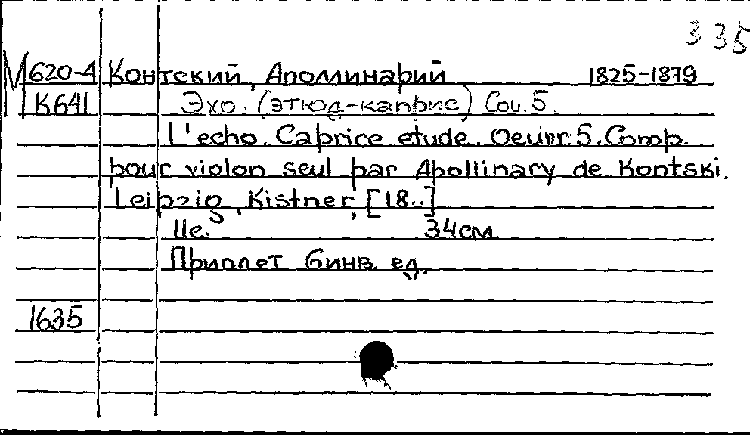 335
М620-4 Контский, Аполлинарий 1825-1879
К641 Эхо. (этюд-каприс) Соч. 5.
L'echo. Caprice etude. Oeuvr. 5. Comp.
pour violon seul par Apollinary de Kontski.
Leipzig, Kistner, [18..]
11с. 34см
Приплет 6инв. ед.
1635